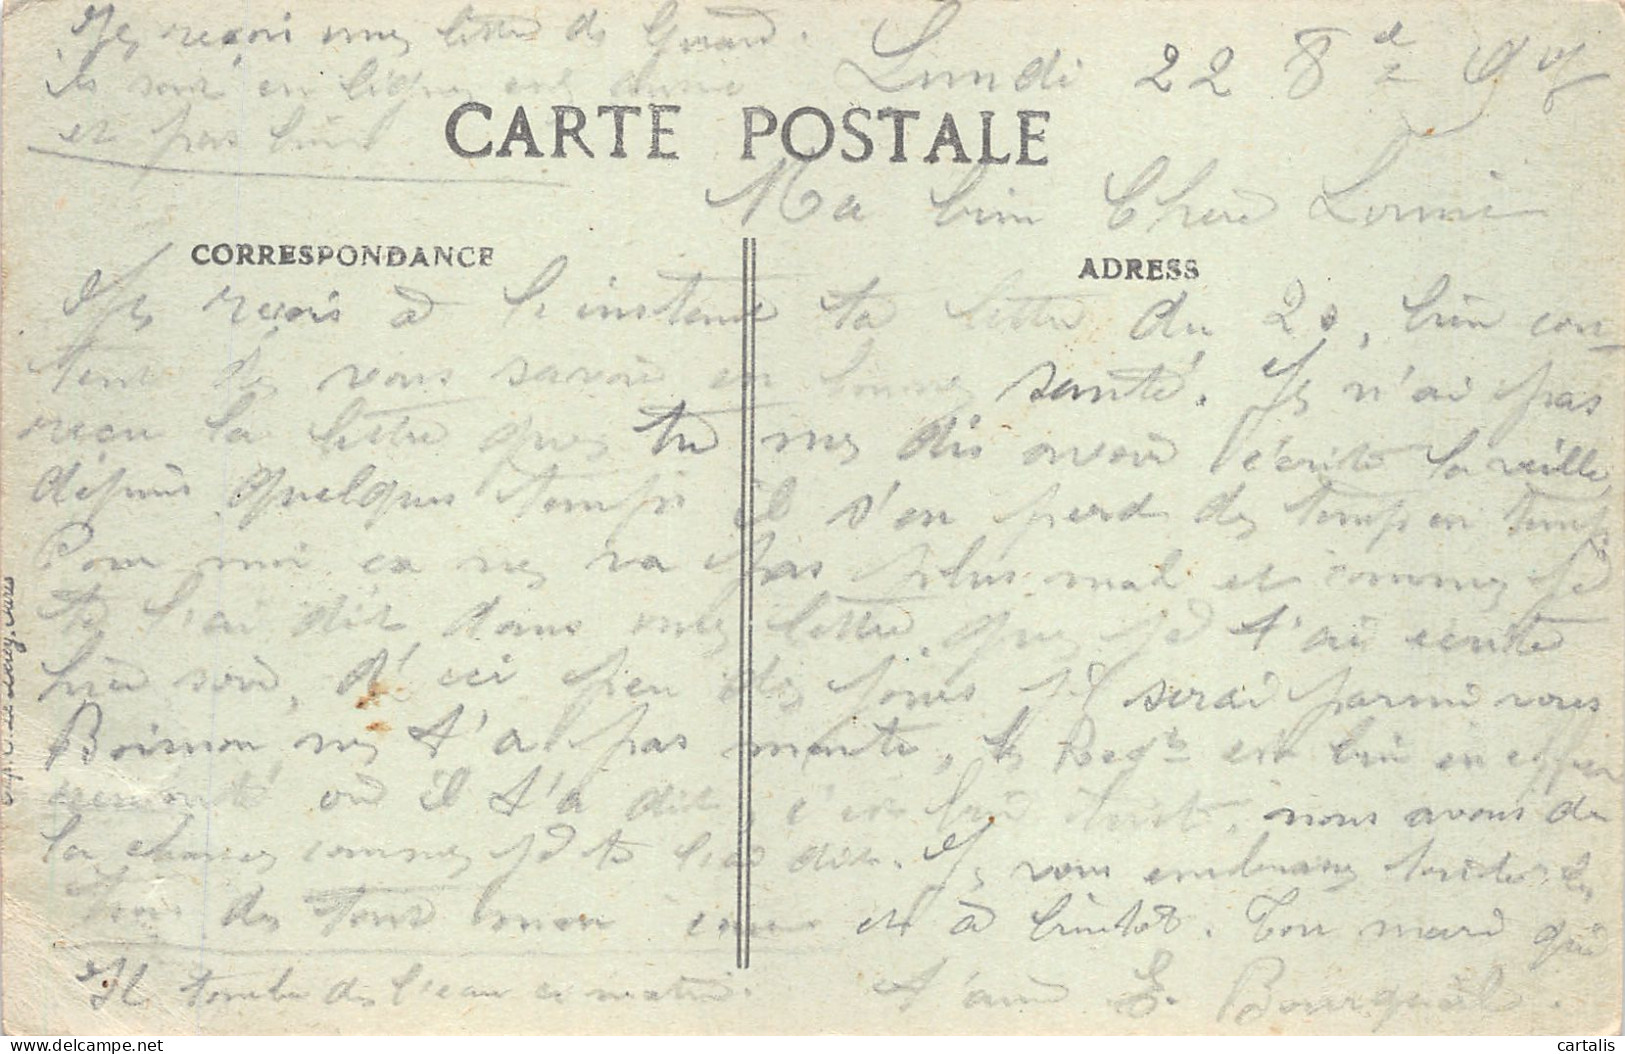 Je reçois une lettre de Gérard.
ils sont en ligne
et pas bien
Lundi 22 8
CARTE POSTALE
Ma bien Chère
CORRESPONDANCE
ADRESS
Je reçois à l'instant ta lettre du 20, bien con-
tent de vous savoir en bonne santé. Je n'ai pas
reçu la lettre que tu me dis avoir écrite la veille,
depuis quelques temps il s'en perd de temps en temps
Pour moi ca ne va pas plus mal et comme je
te l'ai dit dans une lettre que je t'ai écrite
hier soir, d'ici peu de jours je serai parmi vous
Boimon ne t'a pas menti, le Reg est bien en effet
remonté où il t'a dit, c'est bien triste, nous avons de
la chance comme je te l'ai dit. Je vous embrasse toutes les
trois de tout mon et à bientôt. Ton mari qui
Il tombe de l'eau ce matin.
t'aime E.